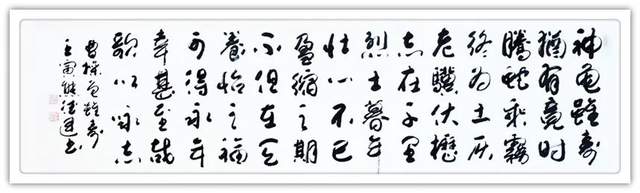 神龟雖寿
猶有竟时
騰蛇乘霧
终为土灰
老驥伏櫪
志在千里
烈士暮年
壮心不已
盈縮之期
不但在天
養怡之福
可得永年
幸甚至哉
歌以咏志
曹操龟雖寿
壬寅熊书